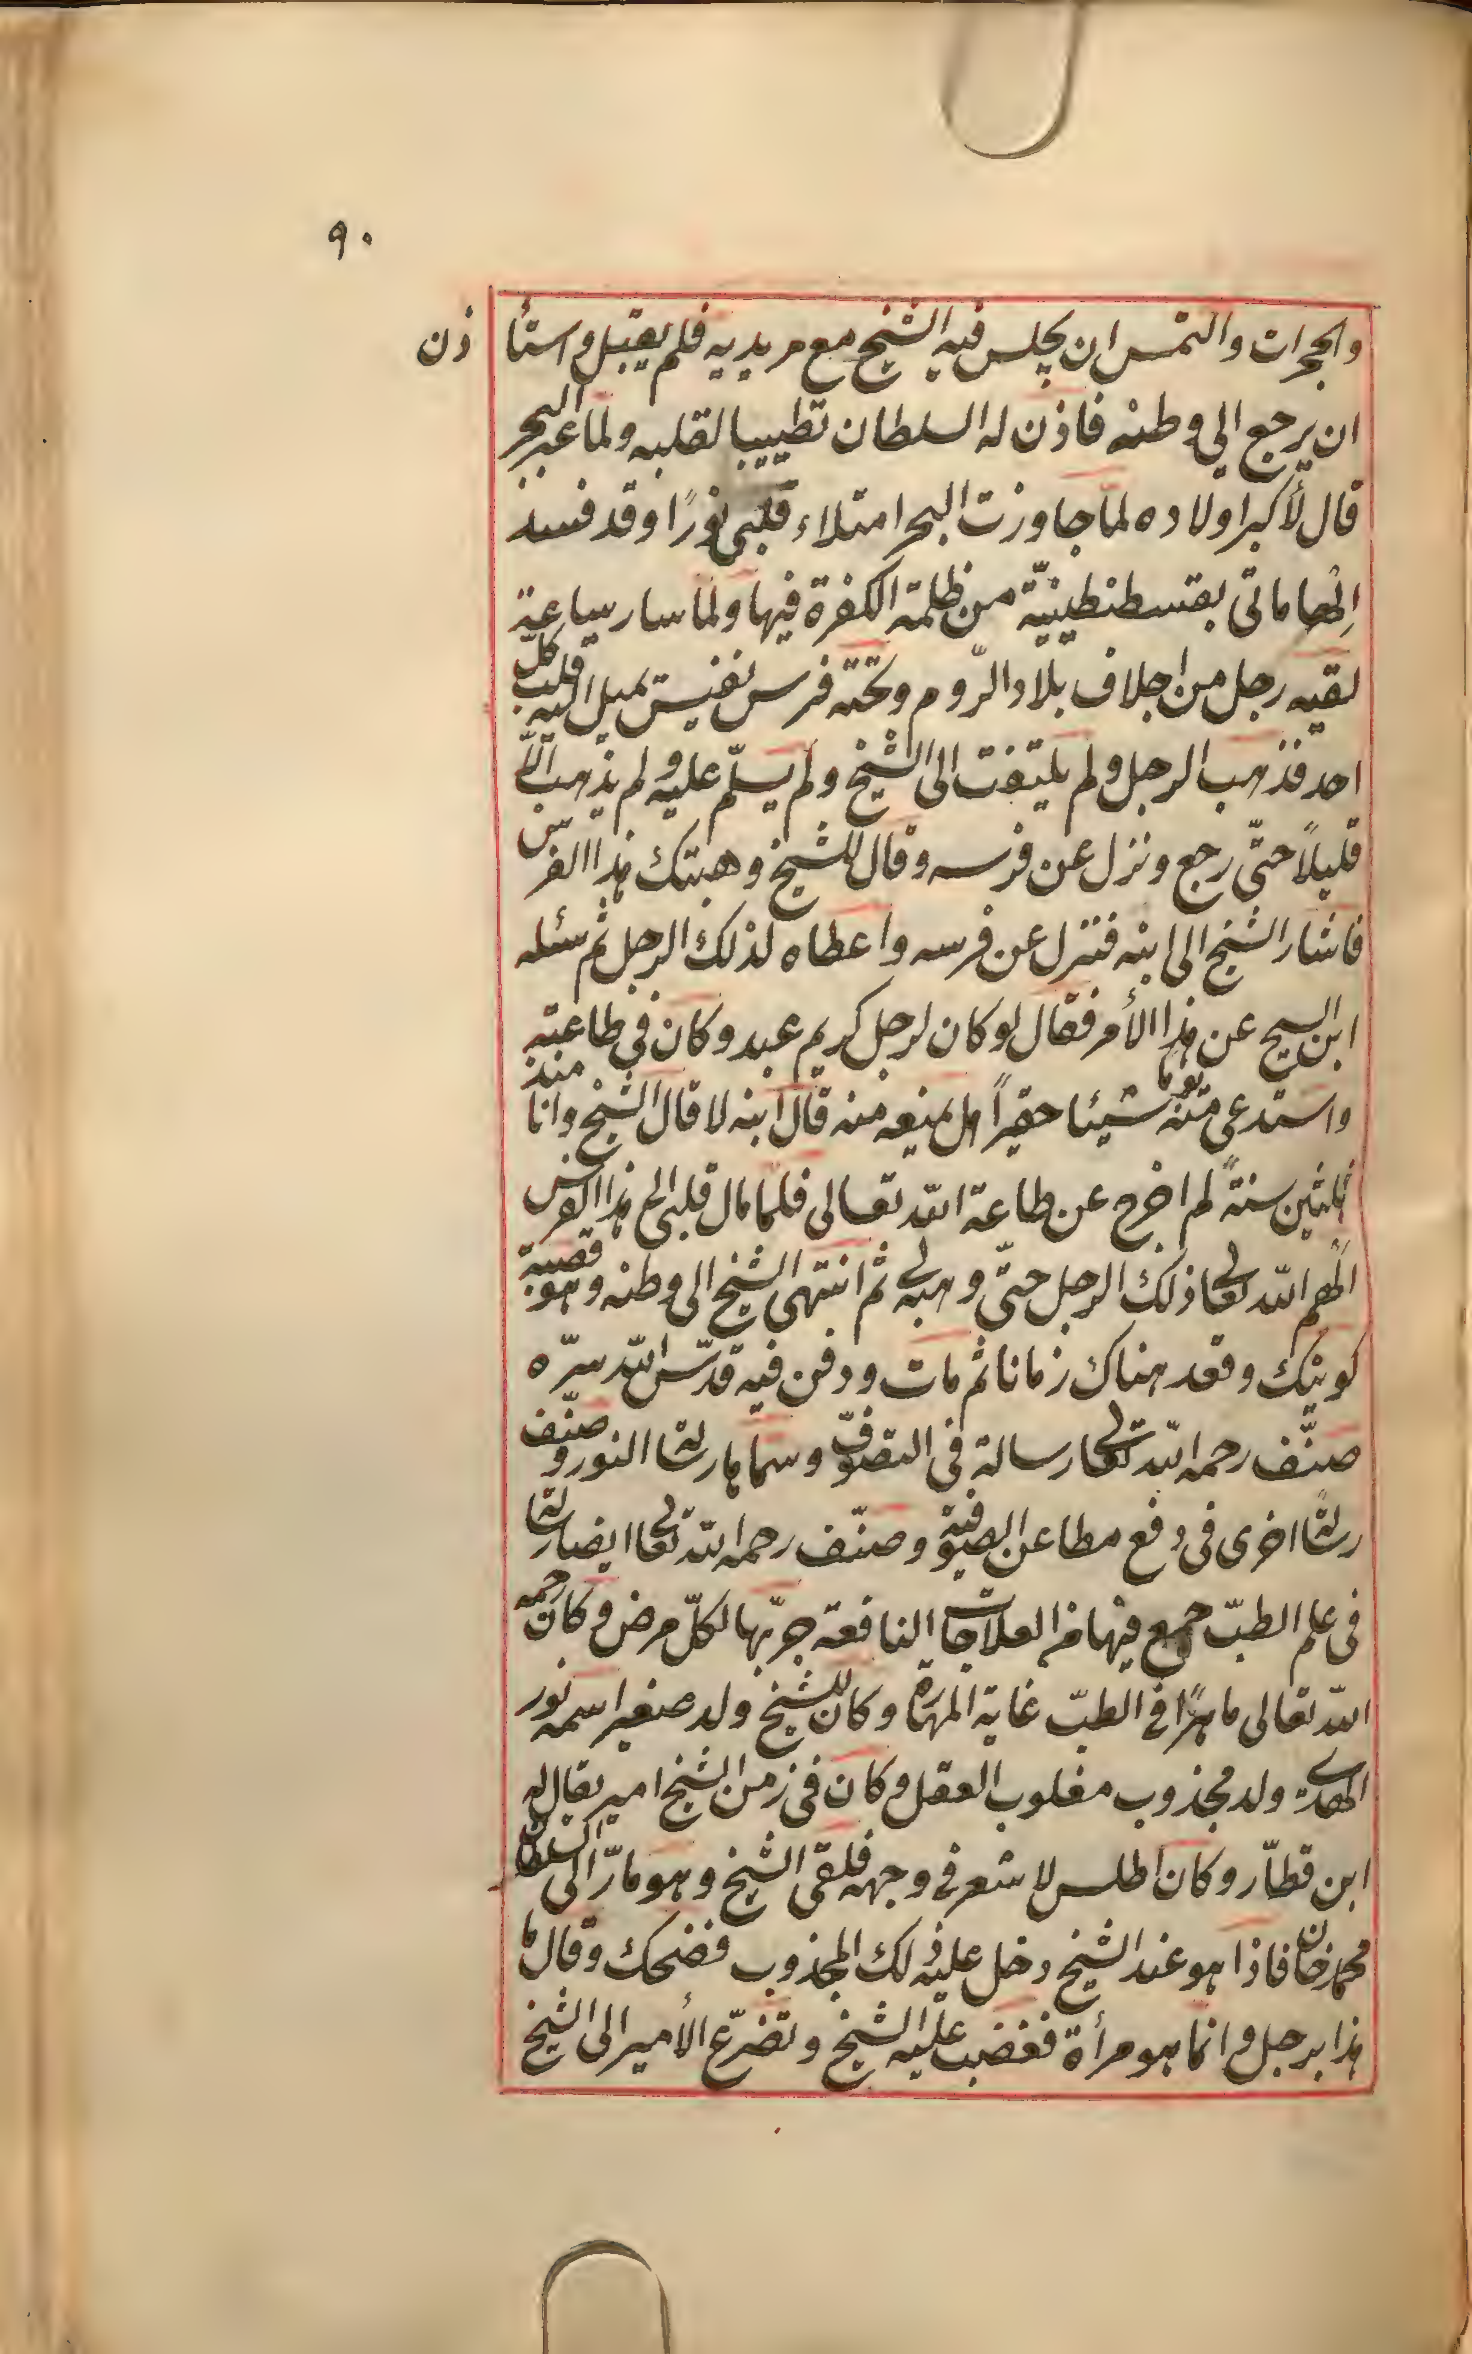 ٩٠
والحجرات والتمس ان يجلس فيه الشيخ مع مريديه فلم يقبل واستأذن
ان يرجع الى وطنه فاذن له السلطان تطييبا لقلبه ولما عبر البحر
قال لأكبر اولاده لمّا جاوزت البحر امتلاء قلبى نورًا وقد فسد
اِلهاماتى بقسطنطينيّة من ظلمة الكفرة فيها ولما سار ساعة
لقيه رجل من اجلاف بلاد الرّوم وتحته فرس نفيس يميل اليه قلب كلّ
احد فذهب الرجل ولم يلتفت الى الشيخ ولم يسلّم عليه ولم يذهب الّا
قليلاً حتّى رجع ونزل عن فرسه وقال للشيخ وهبتك هذا الفرس
فاشار الشيخ الى ابنه فنزل عن فرسه واعطاه لذلك الرجل ثم سئله
ابن الشيخ عن هذا الأمر فقال لو كان لرجل كريم عبد وكان فى طاعته
واستدعى منه يوما شيئا حقيراً هل يمنعه منه قال ابنه لا قال الشيخ وانا منذ
ثلثين سنةً لم اخرج عن طاعة الله تعالى فلما مال قلبى الى هذا الفرس
الهم الله تعالى ذلك الرجل حتّى وهبه لى ثم انتهى الشيخ الى وطنه وهو قصبة
كوينك وقعد هناك زمانا ثم مات ودفن فيه قدّس الله سرّه
صنّف رحمه الله تعالى رسالة فى التصوّف وسماها رسالة النور وصنّف
رسالة اخرى فى دفع مطاعن الصوفيّة وصنّف رحمه الله تعالى ايضا رسالة
فى علم الطبّ جمع فيها من العلاجات النافعة جرّبها لكلّ مرض وكان رحمه
الله تعالى ماهرًا فى الطبّ غاية المهارة وكان للشيخ ولد صغير اسمه نور
الهدى ولد مجذوب مغلوب العقل وكان فى زمن الشيخ امير يقال له
ابن قطّار وكان اطلس لا شعر فى وجهه فلقى الشيخ وهو مارّ الى السلطان
محمد خان فاذا هو عند الشيخ دخل عليه ذلك المجذوب فضحك وقال ما
هذا برجل وانما هو مرأة فغضب عليه الشيخ وتضرّع الأمير الى الشيخ